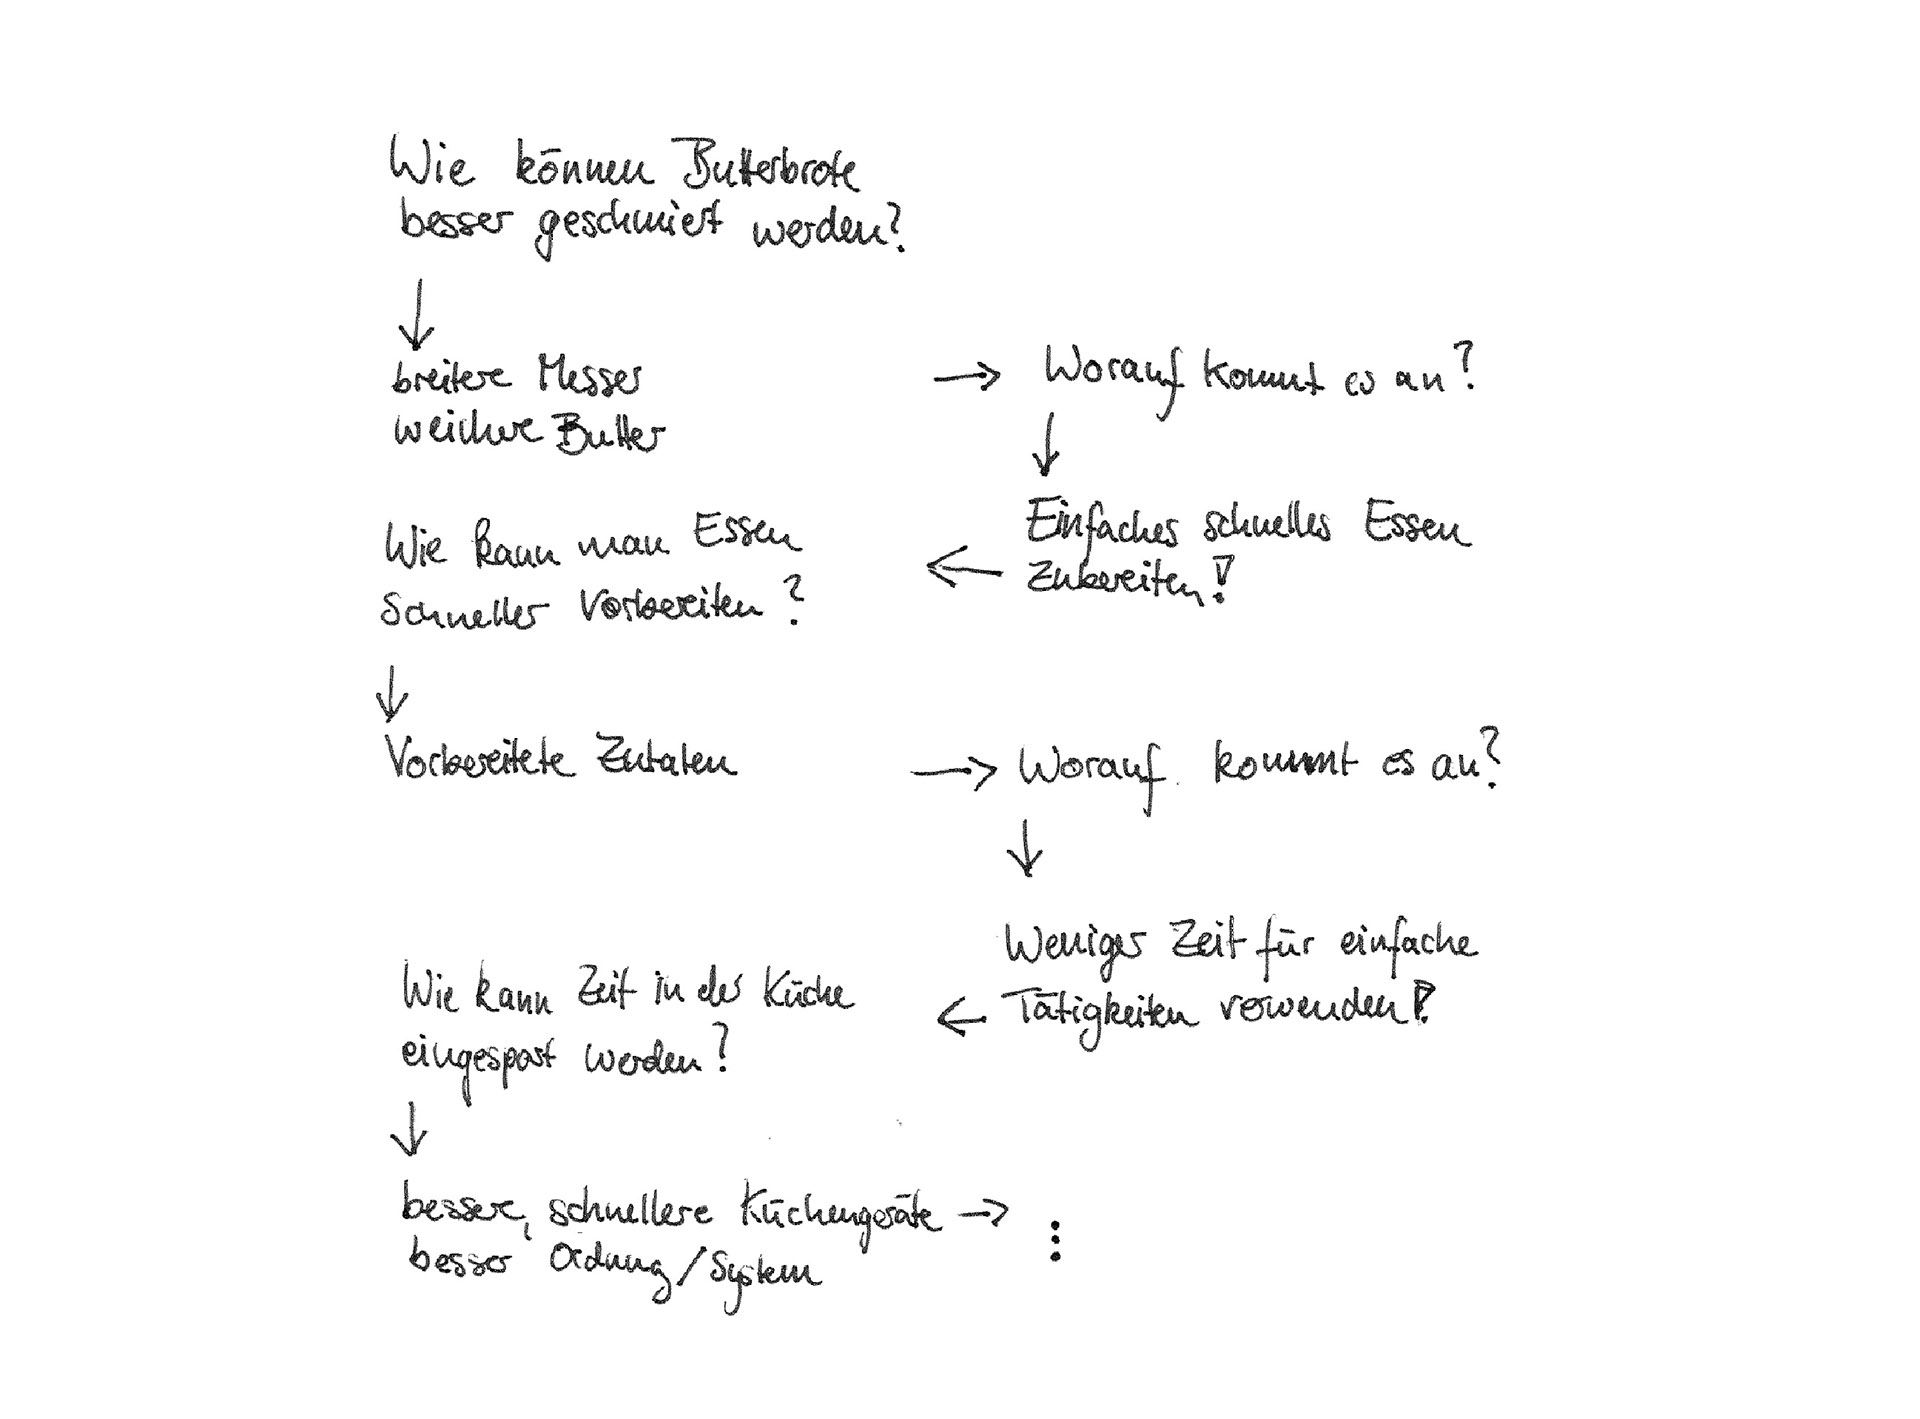 Wie können Butterbrote
besser geschmiert werden?
↓
breitere Messer
weichere Butter
→ Worauf kommt es an?
↓
Einfaches schnelles Essen
zubereiten!
←
Wie kann man Essen
schneller vorbereiten?
↓
Vorbereitete Zutaten
→ Worauf kommt es an?
↓
Weniger Zeit für einfache
Tätigkeiten verwenden!
←
Wie kann Zeit in der Küche
eingespart werden?
↓
bessere, schnellere Küchengeräte →
besser Ordnung/System
⋮